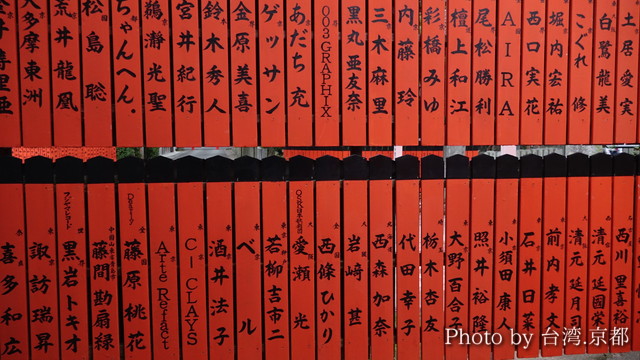 土居愛実
白鷺龍美
こぐれ修
堀内宏祐
西口実花
AIRA
尾松勝利
檀上和江
彩橋みゆ
内藤玲
三木麻里
黒丸亜友奈
003GRAPHIX
あだち充
ゲッサン
金原美喜
鈴木秀人
宮井紀行
鵜瀞光聖
ちゃんへん.
松島聡
荒井龍凰
多摩東洲
西川里喜裕
清元延國栄
清元延月司
前内孝文
石井日菜
小須田康人
照井裕隆
大野百合
栃木杏友
代田幸子
西森加奈
岩﨑甚
西條ひかり
愛瀬光
若柳吉市二
ベル
酒井法子
C-CLAYS
Arte Refact
藤原桃花
藤間勘扇緑
黒岩トキオ
諏訪瑞昇
喜多和広
Photo by 台湾.京都